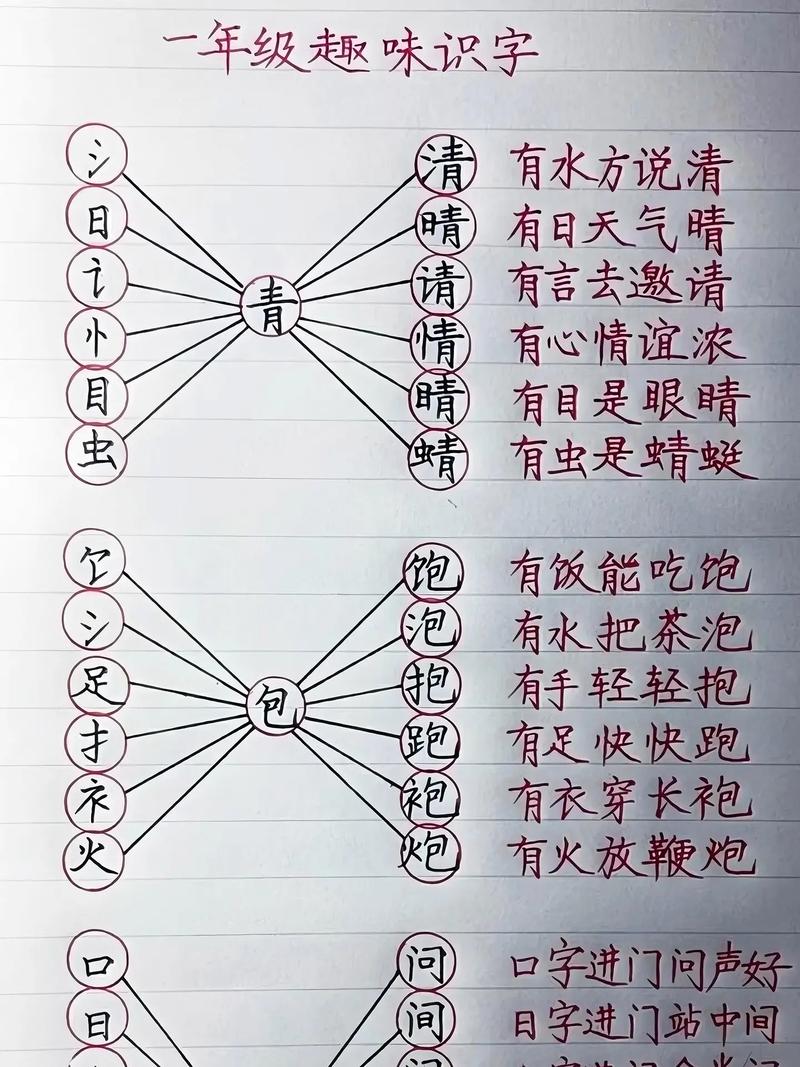 一年级趣味识字
氵 清 有水方说清
日 晴 有日天气晴
讠 请 有言去邀请
青
忄 情 有心情谊浓
目 睛 有目是眼睛
虫 蜻 有虫是蜻蜓
饣 饱 有饭能吃饱
氵 泡 有水把茶泡
足 抱 有手轻轻抱
包
扌 跑 有足快快跑
衤 袍 有衣穿长袍
火 炮 有火放鞭炮
口 问 口字进门问声好
日 间 日字进门站中间